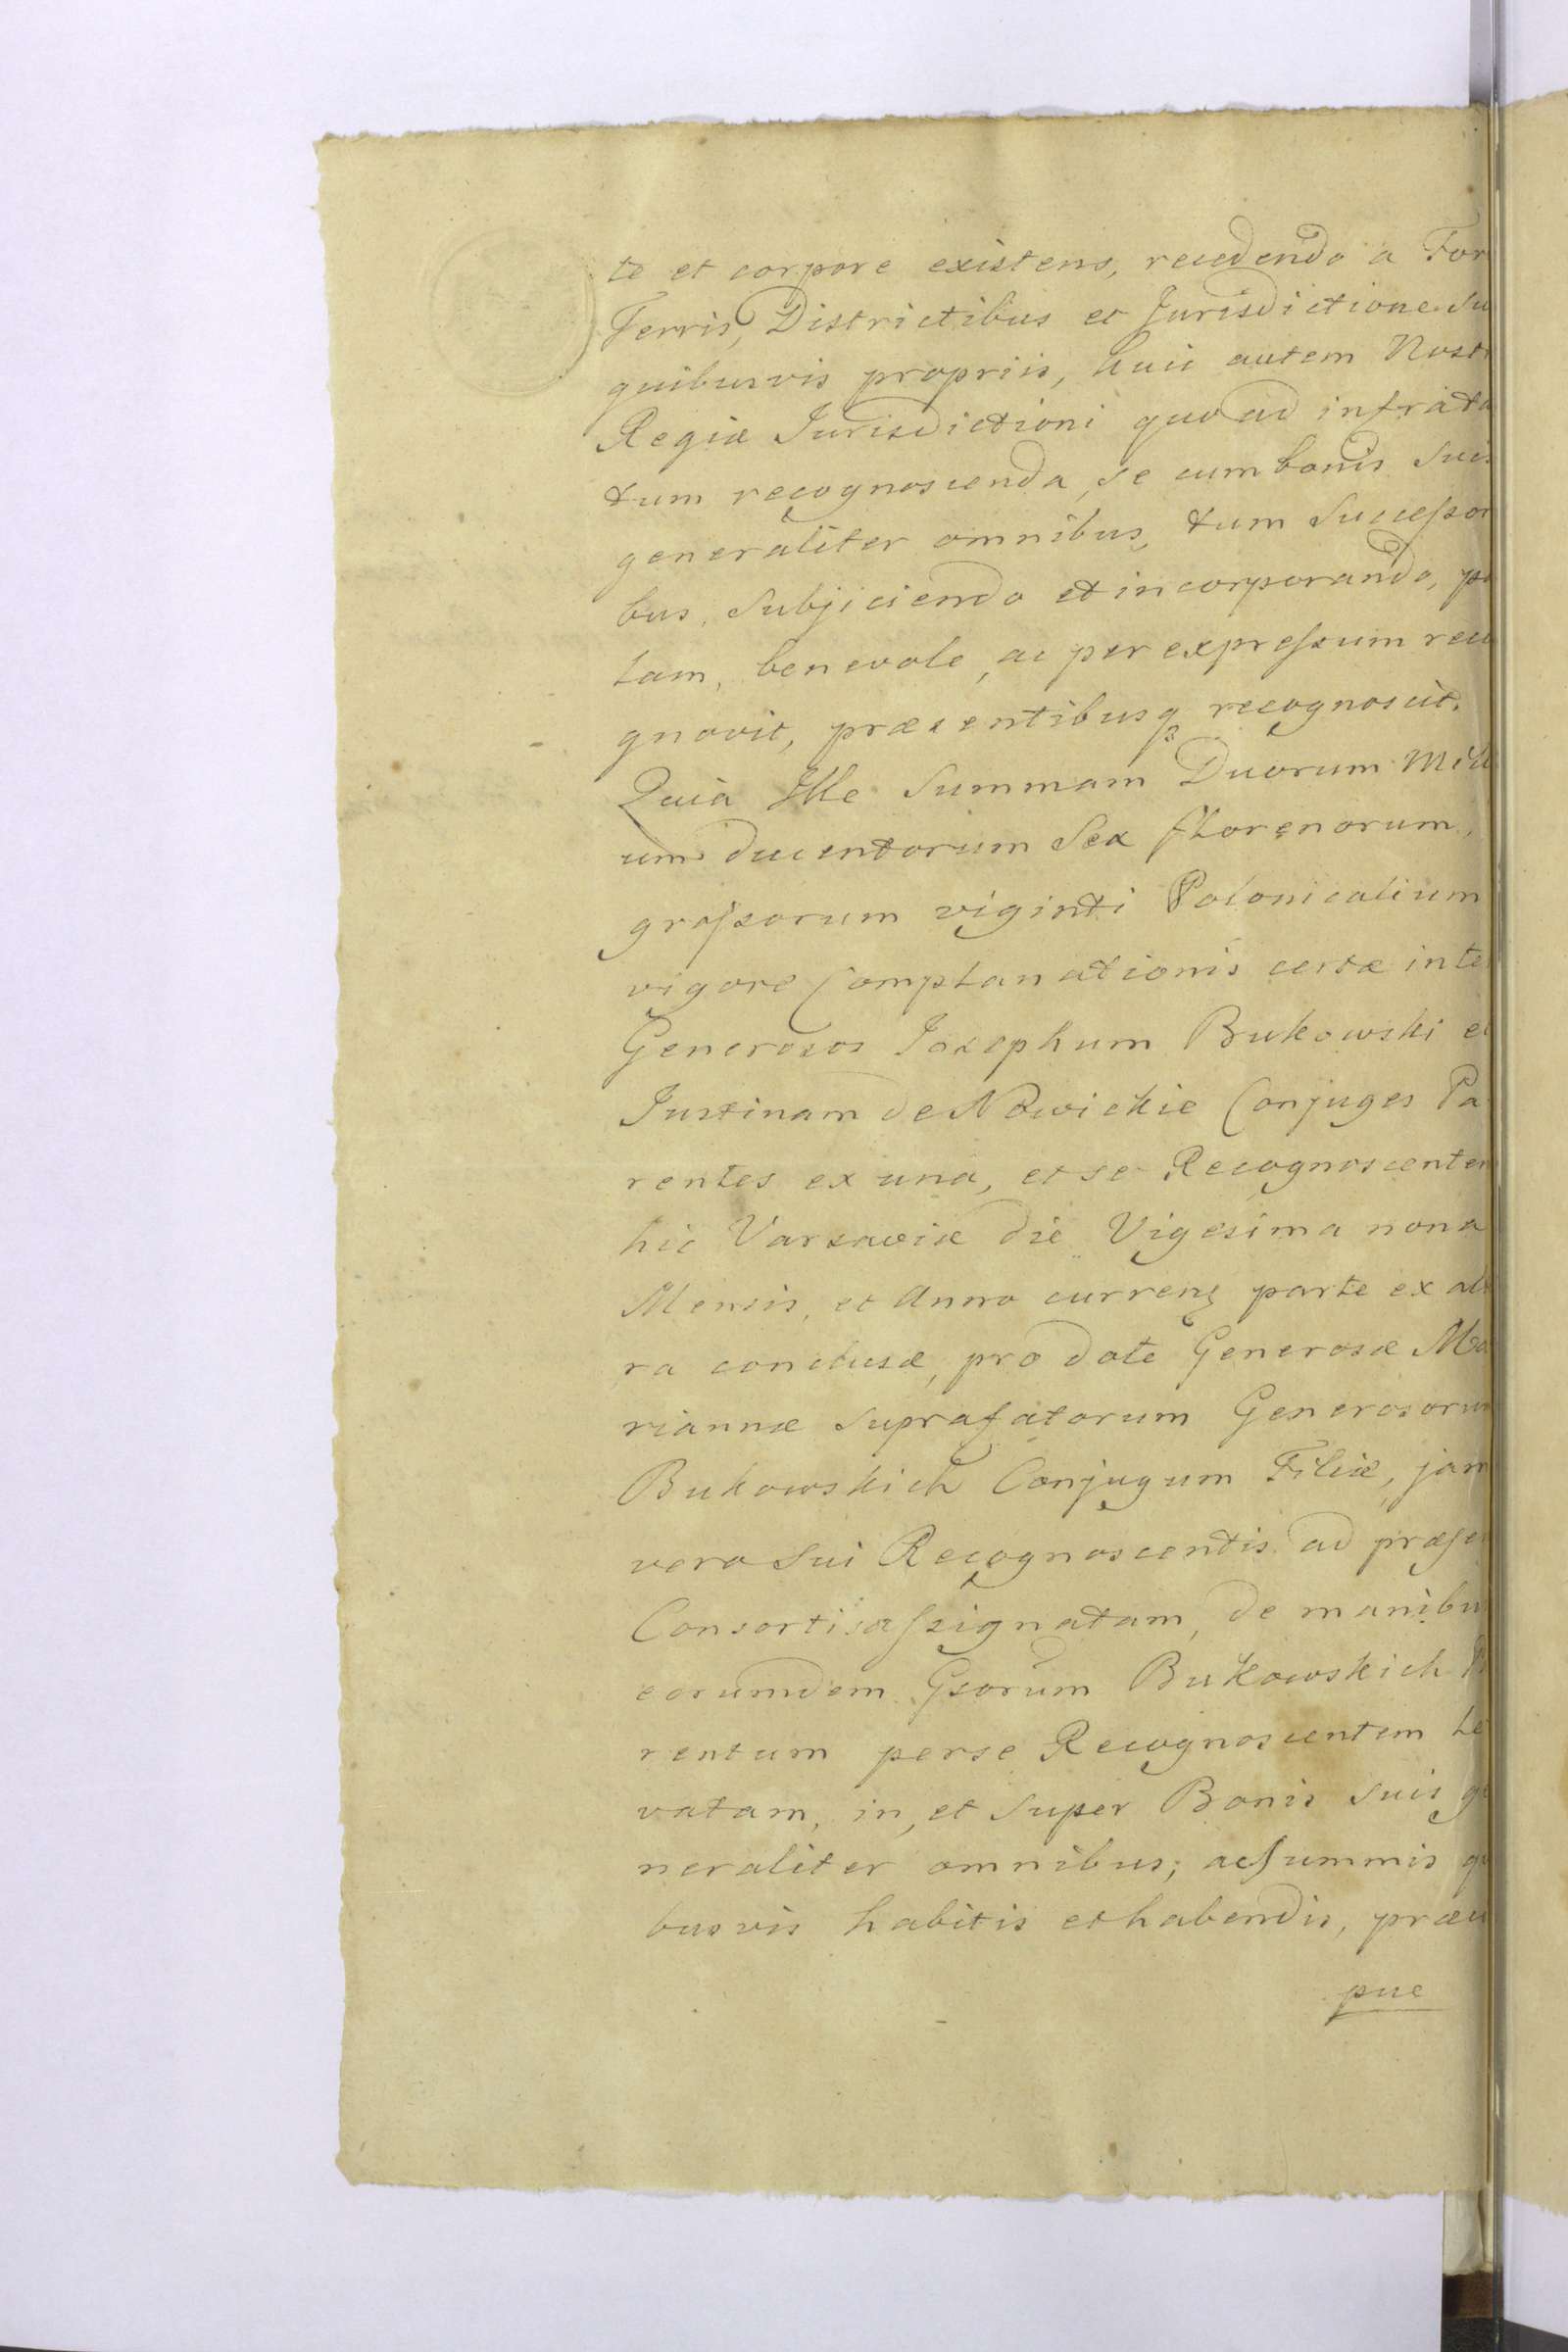 te et corpore existens, recedendo a For
Terris, Districtibus et Jurisdictione Su
quibusvis propriis, huic autem Nostr
Regiæ Jurisdictioni quo ad infrato
tum recognoscenda, se cum bonis suis
generaliter omnibus, tum Succeſsor
bus, Subjiciendo et incorporando, pa
lam, benevole, ac per expreſsum reco
gnovit, præsentibusq recognoscit.
Quia Ille Summam Duorum Mill
ium ducentorum Sex florenorum,
groſsorum viginti Polonicalium
vigore Complanationis certæ inte
Generosos Josephum Bukowski et
Justinam de Nowickie Conjuges Pa
rentes ex una, et se Recognoscentem
hic Varsaviæ die Vigesima nona
Mensis, et Anno currenꝭ parte ex alt
ra conclusæ, pro dote Generosæ Ma
riannæ suprafatorum Generosorum
Bukowskich Conjugum Filiæ, jam
vero Sui Recognoscentis ad præse
Consortis aſsignatam, de manibu
eorumdem Gsorum Bukowskich P
rentum per se Recognoscentem le
vatam, in, et super Bonis suis ge
neraliter omnibus; ac summis qu
busvis habitis et habendis, præci
pue